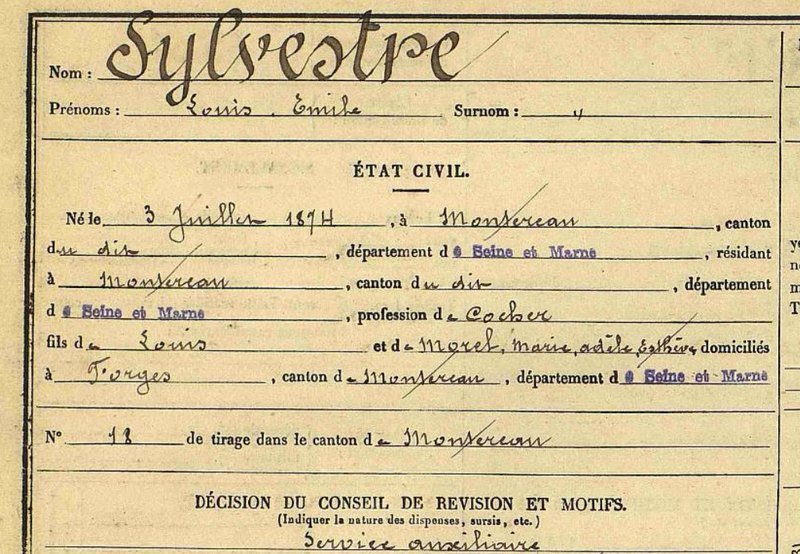 Nom : Sylvestre
Prénoms : Louis . Emile Surnom : "
ÉTAT CIVIL.
Né le 3 Juillet 1874 , à Montereau , canton
du dit , département de Seine et Marne , résidant
à Montereau , canton du dit , département
de Seine et Marne , profession de Cocher
fils de Louis et de Moret, Marie, adèle, domiciliés
à Forges , canton de Montereau , département de Seine et Marne
N° 18 de tirage dans le canton de Montereau
DÉCISION DU CONSEIL DE REVISION ET MOTIFS.
(Indiquer la nature des dispenses, sursis, etc.)
Service auxiliaire